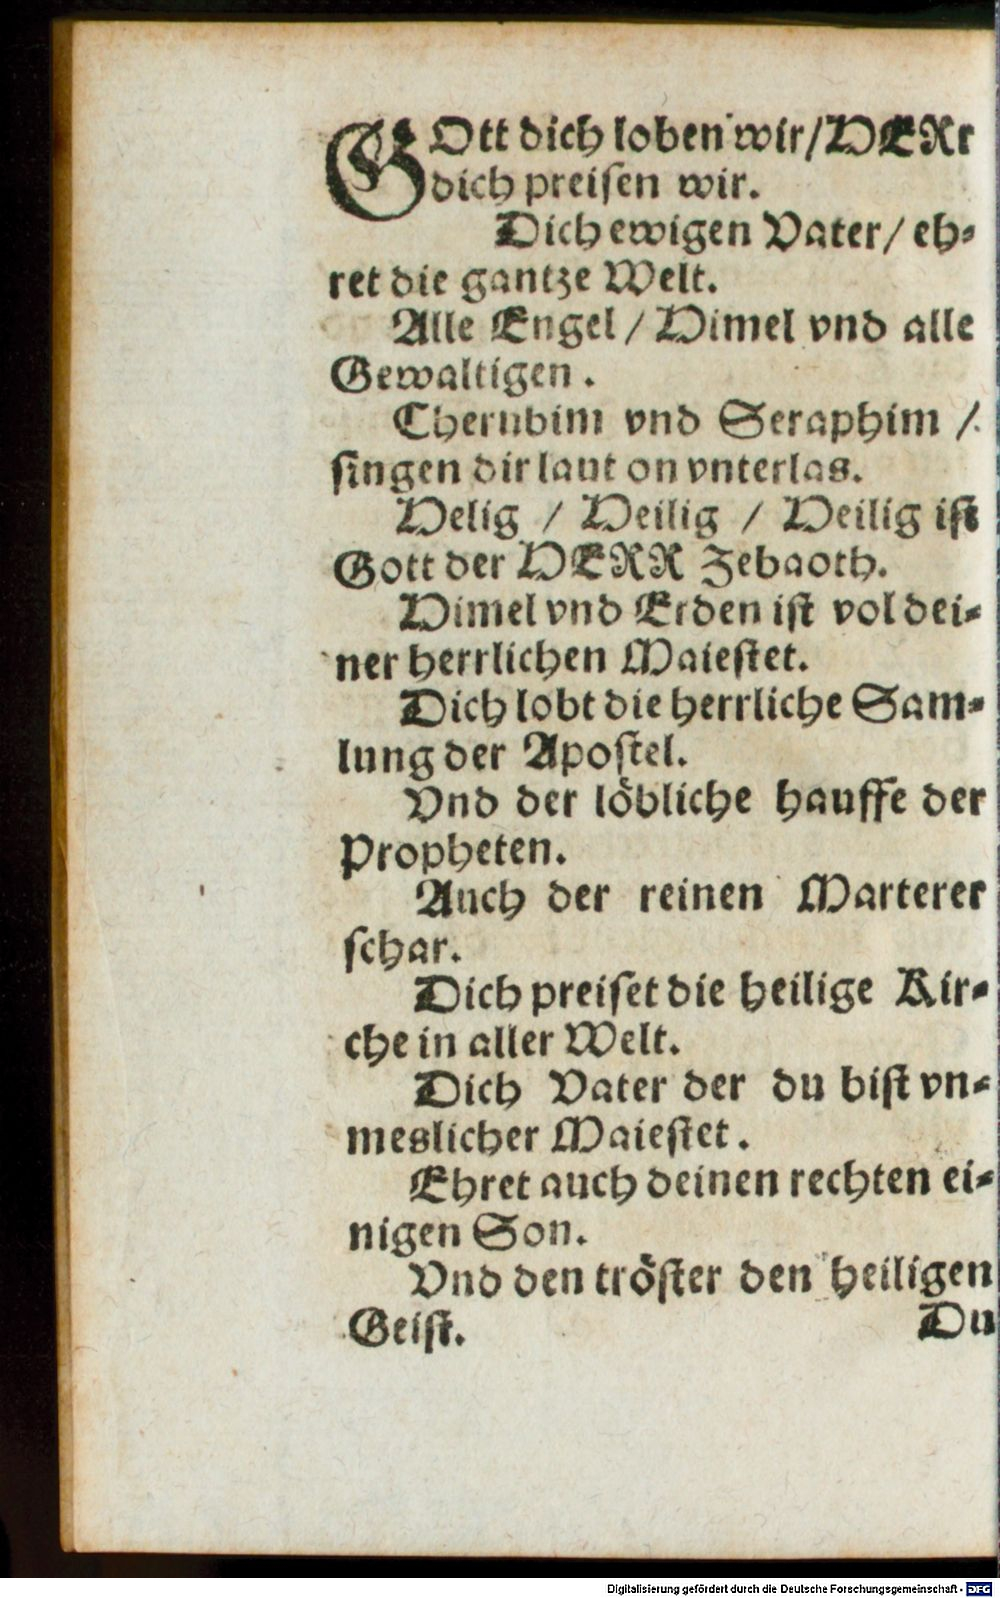 GOtt dich loben wir/HERr
dich preisen wir.
Dich ewigen Vater/ eh-
ret die gantze Welt.
Alle Engel / Himel vnd alle
Gewaltigen .
Cherubim vnd Seraphim /
singen dir laut on vnterlas.
Helig / Heilig / Heilig ist
Gott der HERR Zebaoth.
Himel vnd Erden ist vol dei-
ner herrlichen Maiestet.
Dich lobt die herrliche Sam-
lung der Apostel.
Vnd der löbliche hauffe der
Propheten.
Auch der reinen Marterer
schar.
Dich preiset die heilige Kir-
che in aller Welt.
Dich Vater der du bist vn-
meslicher Maiestet .
Ehret auch deinen rechten ei-
nigen Son.
Vnd den tröster den heiligen
Geist. Du
Digitalisierung gefördert durch die Deutsche Forschungsgemeinschaft - DFG